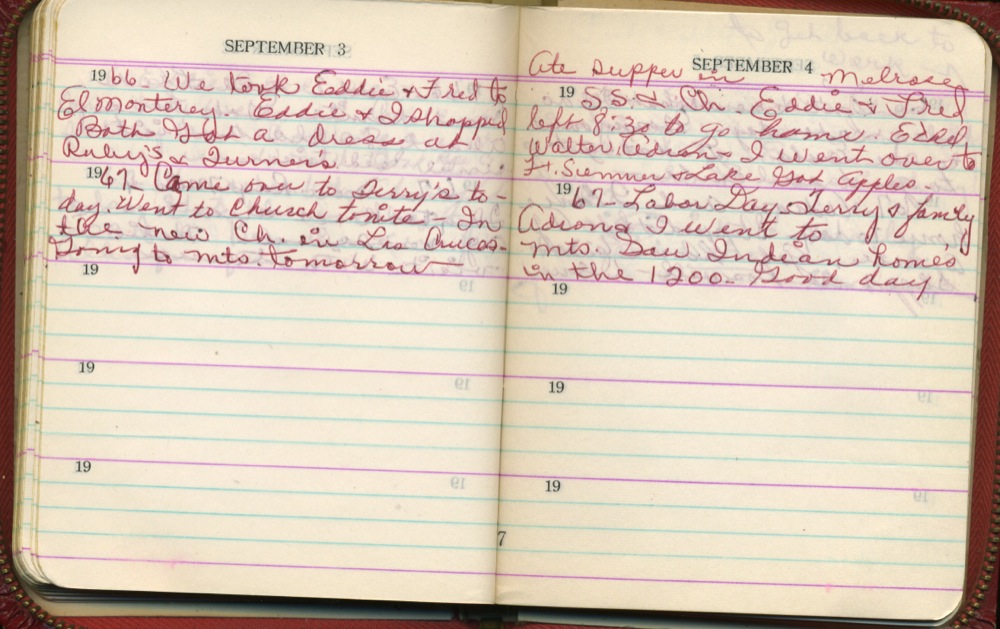 SEPTEMBER 3
1966 We took Eddie & Fred to
El Monterey. Eddie & I shopped
Both Got a dress at
Ruby's & Turner's
1967- Came over to Terry's to-
day. Went to Church tonite - In
the new Ch. in Las
Going to mts. tomorrow
19
19
19
Ate supper in Melrose
SEPTEMBER 4
19 S.S. & Ch. Eddie & Fred
left 8:30 to go home.
Walter, & I went over to
Ft. Sumner & Lake Got Apples.
1967- Labor Day Terry & family
& I went to
mts. Saw Indian homes
in the 1200- Good day
19
19
19
7
to get back to
work